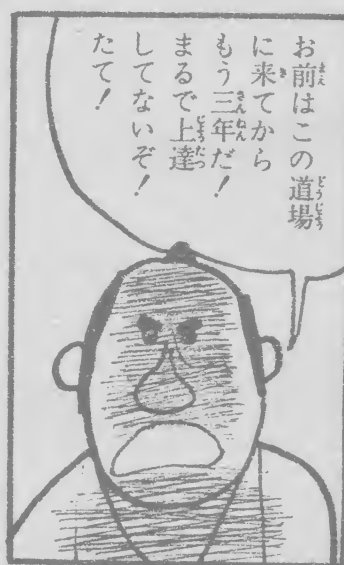 お前はこの道場
に来てから
もう三年だ！
まるで上達
してないぞ！
たて！